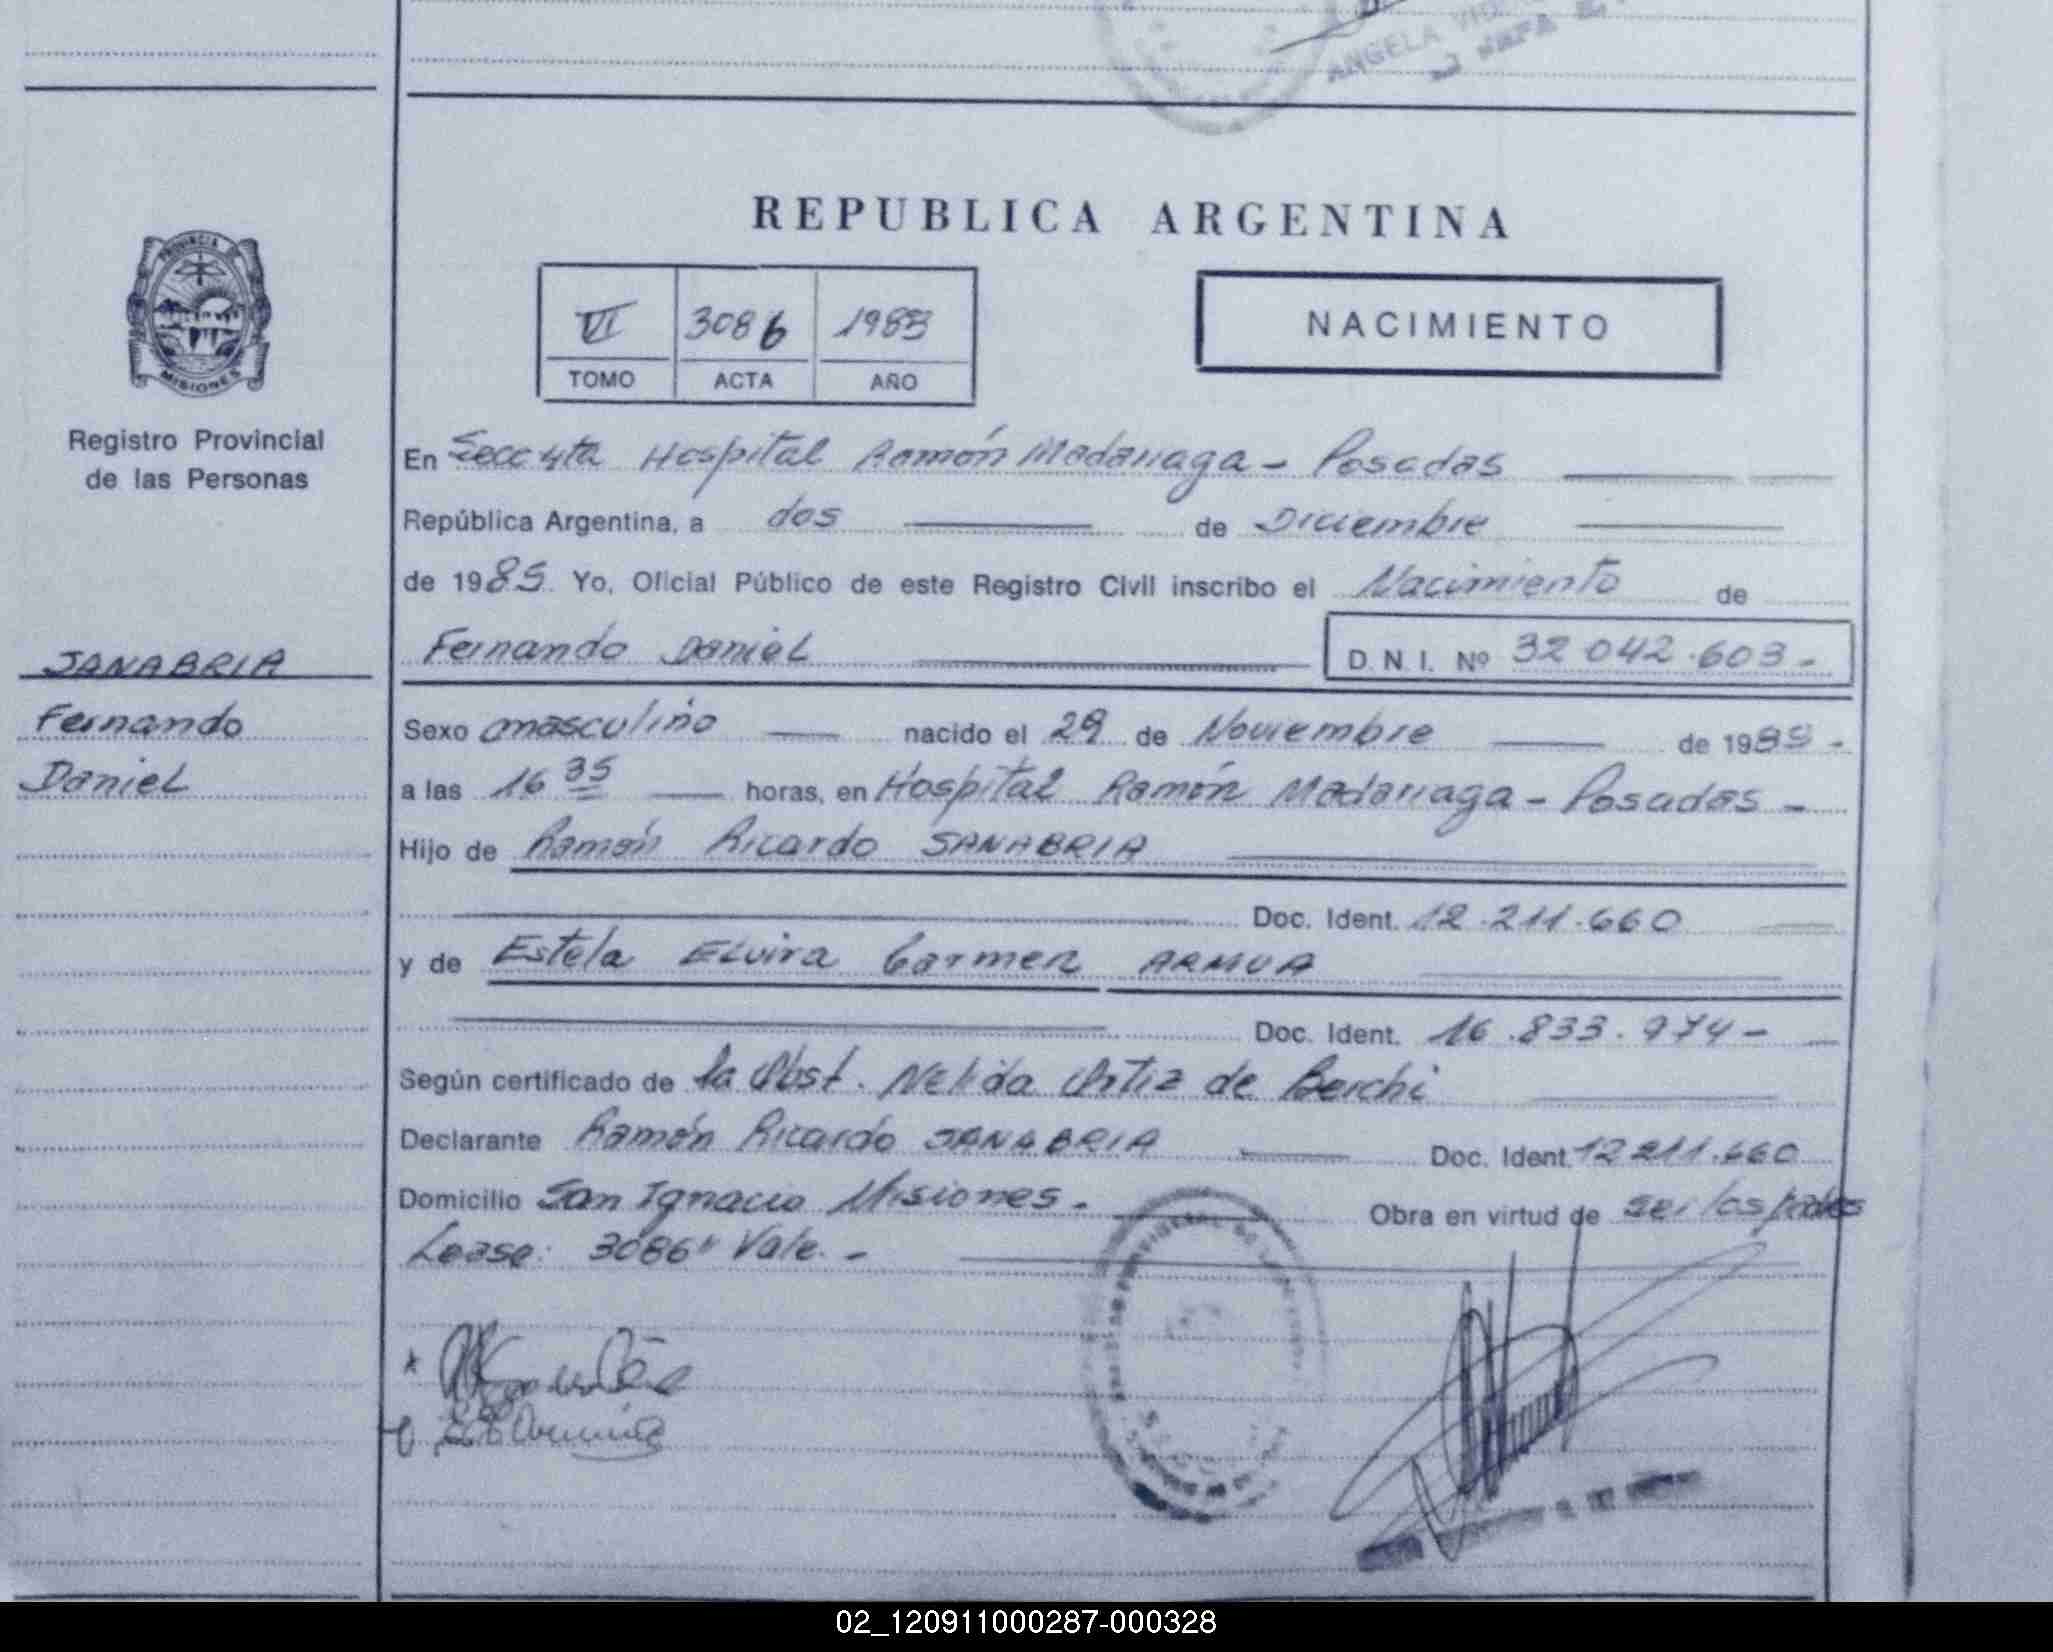 ANGELA
REPUBLICA ARGENTINA
VI 3086 1985
TOMO ACTA AÑO
NACIMIENTO
PROVINCIA DE
MISIONES
Registro Provincial
de las Personas
En Secc 4ta Hospital Ramón Madariaga - Posadas
República Argentina, a dos de Diciembre
de 1985. Yo, Oficial Público de este Registro Civil inscribo el Nacimiento de
Fernando Daniel D. N. I. Nº 32 042.603.-
SANABRIA
Fernando
Daniel
Sexo masculino nacido el 29 de Noviembre de 1985-
a las 16 35 horas, en Hospital Ramón Madariaga - Posadas -
Hijo de Ramón Ricardo SANABRIA
Doc. Ident. 12.211.660
y de Estela Elvira Carmen ARMUA
Doc. Ident. 16.833.974-
Según certificado de la Obst. Nelida Ortiz de Berchi
Declarante Ramón Ricardo SANABRIA Doc. Ident. 12211.660
Domicilio San Ignacio Misiones.- Obra en virtud de ser los padres
Lease: 3086" Vale.-
02_120911000287-000328